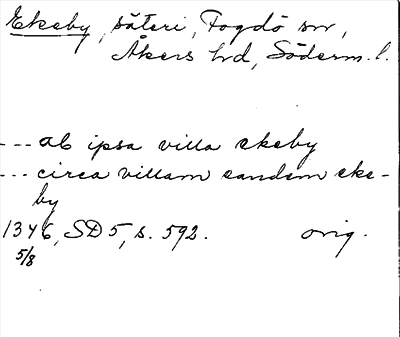 Ekeby, säteri, Fogdö sn,
Åkers hd, Söderm. l.
--- ab ipsa villa ekeby
--- circa villam eandem eke-
by
1346, SD 5, s. 592. orig.
5/8